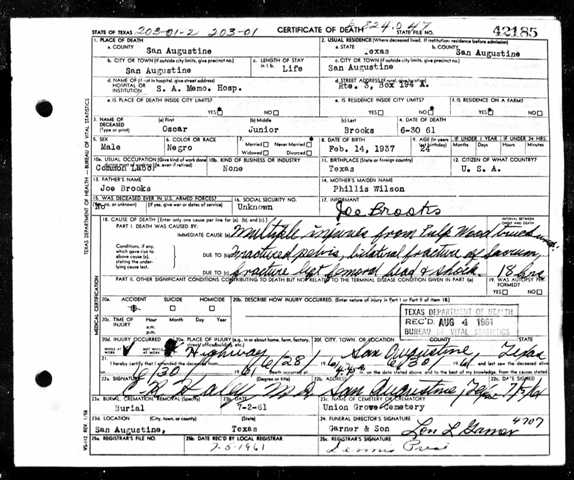 STATE OF TEXAS 203-01-2 203-01 CERTIFICATE OF DEATH STATE FILE NO. 42185
1. PLACE OF DEATH 2. USUAL RESIDENCE (Where deceased lived. If institution: residence before admission)
a. COUNTY San Augustine a. STATE Texas b. COUNTY San Augustine
b. CITY OR TOWN (If outside city limits, give precinct no.) San Augustine c. LENGTH OF STAY Life c. CITY OR TOWN (If outside city limits, give precinct no.) San Augustine
d. NAME OF (If not in hospital, give street address) HOSPITAL OR INSTITUTION S. A. Memo. Hosp. d. STREET ADDRESS (If rural, give location) Rte. 3, Box 194 A.
e. IS PLACE OF DEATH INSIDE CITY LIMITS? YES NO e. IS RESIDENCE INSIDE CITY LIMITS? YES NO f. IS RESIDENCE ON A FARM? YES NO
3. NAME OF DECEASED (Type or print) (a) First Oscar (b) Middle Junior (c) Last Brooks 4. DATE OF DEATH 6-30 61
5. SEX Male 6. COLOR OR RACE Negro 7. Married Never Married Widowed Divorced 8. DATE OF BIRTH Feb. 14, 1937 24 IF UNDER 1 YEAR Months Days IF UNDER 24 HRS. Hours Minutes
10a. USUAL OCCUPATION (Give kind of work done) Common Labor 10b. KIND OF BUSINESS OR INDUSTRY None 11. BIRTHPLACE (State or foreign country) Texas 12. CITIZEN OF WHAT COUNTRY? U. S. A.
13. FATHER'S NAME Joe Brooks 14. MOTHER'S MAIDEN NAME Phillis Wilson
15. WAS DECEASED EVER IN U.S. ARMED FORCES? No 16. SOCIAL SECURITY NO. Unknown 17. INFORMANT Joe Brooks
18. CAUSE OF DEATH (Enter only one cause per line for (a), (b), and (c).)
PART I. DEATH WAS CAUSED BY: IMMEDIATE CAUSE (a) Multiple injuries from Pulp Wood truck
Conditions, if any, which gave rise to above cause (a), stating the underlying cause last. DUE TO (b) Fractured pelvis, bilateral fracture of
DUE TO (c) fracture femoral head & shock. 18 hrs
PART II. OTHER SIGNIFICANT CONDITIONS CONTRIBUTING TO DEATH BUT NOT RELATED TO THE TERMINAL DISEASE CONDITION GIVEN IN PART I (a) 19. WAS AUTOPSY PERFORMED? YES NO
20a. ACCIDENT SUICIDE HOMICIDE 20b. DESCRIBE HOW INJURY OCCURRED. (Enter nature of injury in Part I or Part II of item 18)
20c. TIME OF INJURY Hour Month Day Year a.m. p.m.
TEXAS DEPARTMENT OF HEALTH
REC'D AUG 4 1961
BUREAU OF VITAL STATISTICS
20d. INJURY OCCURRED 20e. PLACE OF INJURY Highway 20f. CITY, TOWN, OR LOCATION San Augustine COUNTY STATE Texas
6/30 61 6/28 61 6/30 61
22a. SIGNATURE Haley (Degree or title) M.D. 22b. ADDRESS San Augustine, 22c. DATE SIGNED
23a. BURIAL, CREMATION, REMOVAL (Specify) Burial 23b. DATE 7-2-61 23c. NAME OF CEMETERY OR CREMATORY Union Grove Cemetery
23d. LOCATION (City, town, or county) San Augustine, (State) Texas 24. FUNERAL DIRECTOR'S SIGNATURE Garner & Son Len L Garner 4707
25a. REGISTRAR'S FILE NO. 25b. DATE REC'D BY LOCAL REGISTRAR 1961 25c. REGISTRAR'S SIGNATURE
TEXAS DEPARTMENT OF HEALTH—BUREAU OF VITAL STATISTICS
MEDICAL CERTIFICATION